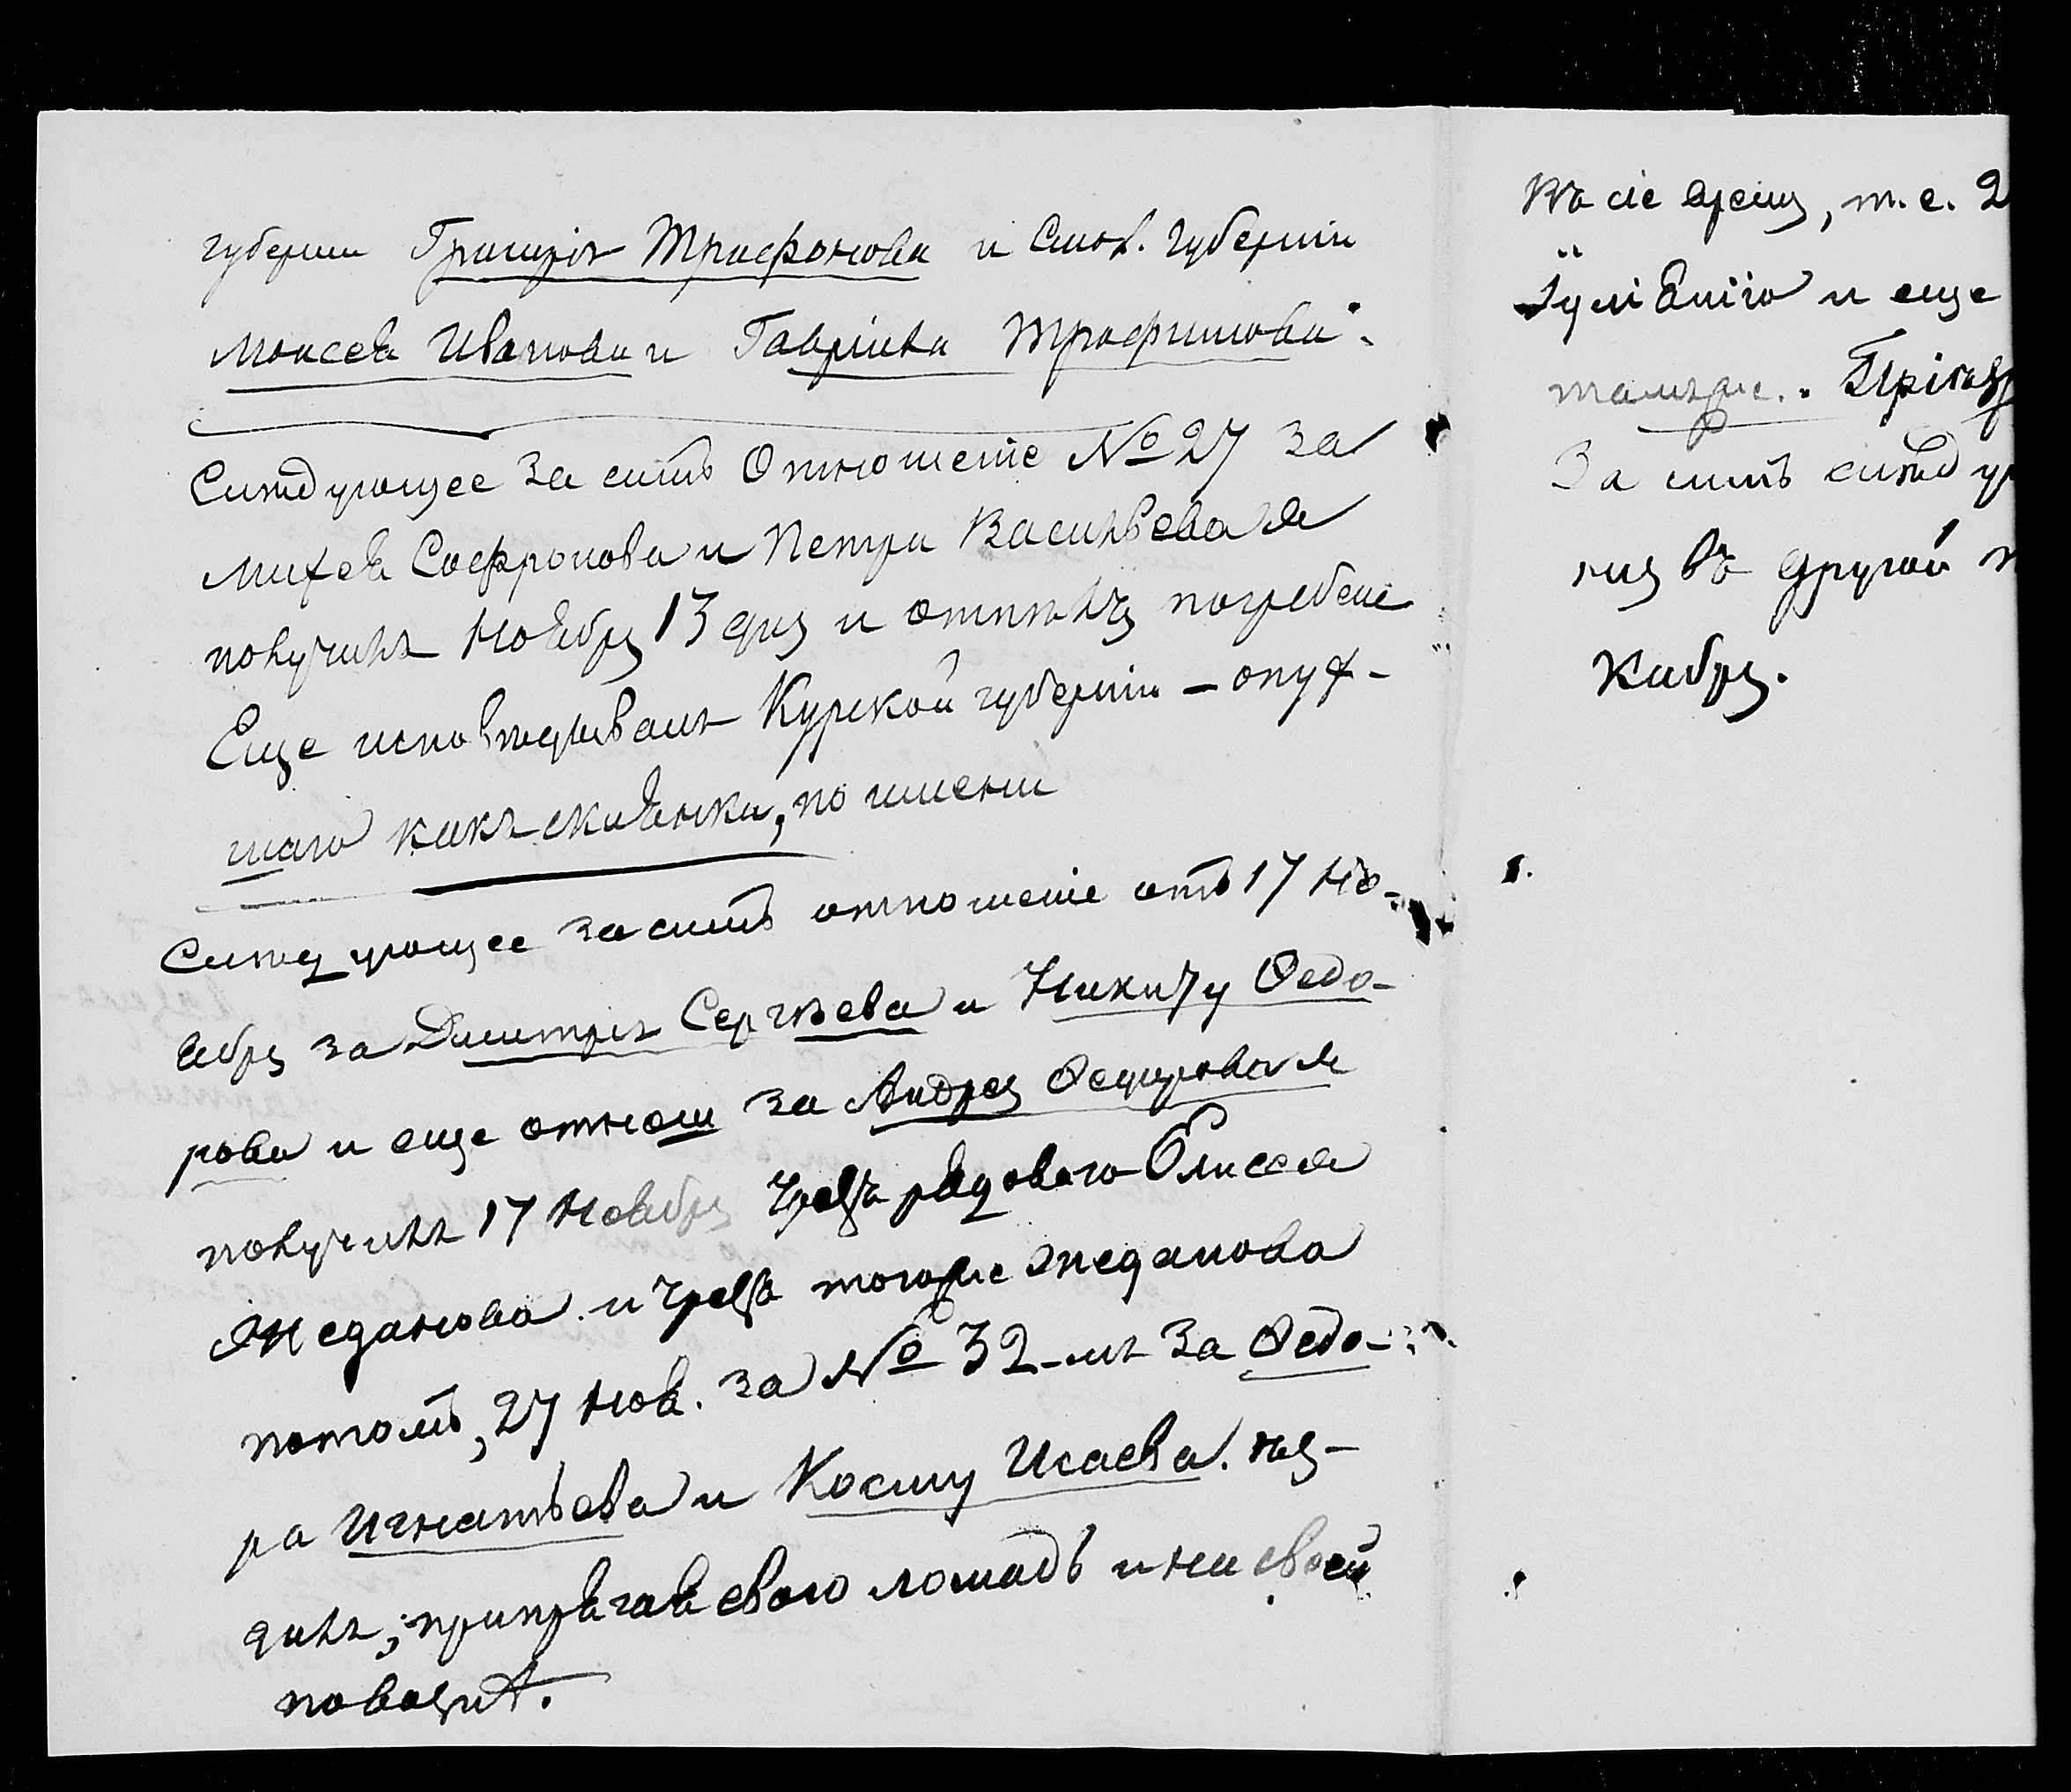 губерніи Григорія Трифонова и Смол. губерніи
Моисея Иванова и Гавріила Трофимова.
Слѣдующее за симъ Отношеніе № 27 за
Михея Софронова и Петра Васильева я
получилъ Ноября 13 дня и отпѣлъ погребеніе
Еще исповѣдывалъ Курской губерніи – опух-
шаго какъ склянка, по имени
Слѣдующее за симъ отношеніе отъ 17 Но-
ября за Димитрія Сергѣева и Никиту Ѳедо-
рова и еще отнош за Андрея Ѳедорова я
получилъ 17 Ноября чрезъ рядового Елисея
Жеданова и чрезъ тогоже Жеданова
потомъ, 27 Ноя. за № 32-мъ За Ѳедо-
ра Игнатьева и Косму Исаева. ѣз-
дилъ, припрягая свою лошадь и на своей
повозкѣ.
Въ сіе время, т. е. 2
Іуліанію и еще
тамъже.
За симъ слѣду
нія въ другой
кабря.